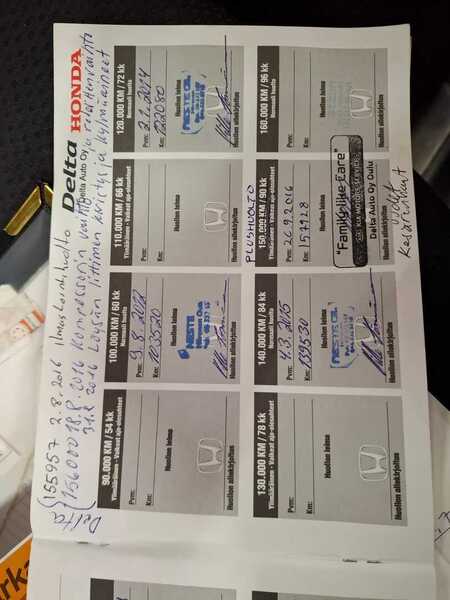 Delta 155957 2.8.2016 Ilmastointihuolto
156000 18.8.2016 Kompressorin vaihto
31.8.2016 Löysän liittimen kiristys ja kylmäaineet
Delta HONDA
Delta Auto Oy
90.000 KM / 54 kk
Ylimääräinen - Vaikeat ajo-olosuhteet
Pvm:
Km:
Huollon leima
Huollon allekirjoitus
100.000 KM / 60 kk
Normaali huolto
Pvm: 9.8.2012
Km:
Huollon leima
NESTE
Huollon allekirjoitus
110.000 KM / 66 kk
Ylimääräinen - Vaikeat ajo-olosuhteet
Pvm:
Km:
Huollon leima
Huollon allekirjoitus
120.000 KM / 72 kk
Normaali huolto
Pvm: 2.1.2014
Km: 122080
Huollon leima
NESTE OIL
Huollon allekirjoitus
130.000 KM / 78 kk
Ylimääräinen - Vaikeat ajo-olosuhteet
Pvm:
Km:
Huollon leima
Huollon allekirjoitus
140.000 KM / 84 kk
Normaali huolto
Pvm: 4.3.2015
Km: 139530
Huollon leima
NESTE OIL
Huollon allekirjoitus
PLUSHUOLTO
150.000 KM / 90 kk
Ylimääräinen - Vaikeat ajo-olosuhteet
Pvm: 26.9.2016
Km: 157728
Huollon leima
"Family-like Care"
KIA MOTORS SERVICE
Delta Auto Oy Oulu
160.000 KM / 96 kk
Normaali huolto
Pvm:
Km:
Huollon leima
Huollon allekirjoitus